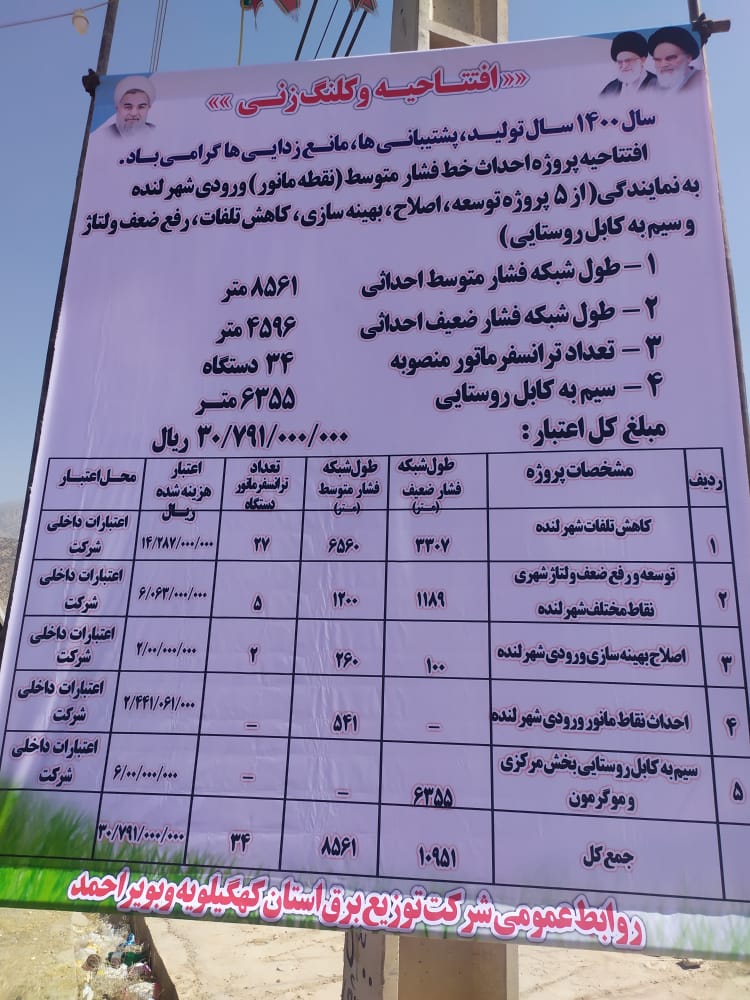 «« افتتاحیه و کلنگ زنی »»
سال ۱۴۰۰ سال تولید، پشتیبانی ها، مانع زدایی ها گرامی باد.
افتتاحیه پروژه احداث خط فشار متوسط (نقطه مانور) ورودی شهر لنده
به نمایندگی( از ۵ پروژه توسعه، اصلاح، بهینه سازی، کاهش تلفات، رفع ضعف ولتاژ
و سیم به کابل روستایی)
۱ – طول شبکه فشار متوسط احداثی ۸۵۶۱ متر
۲ – طول شبکه فشار ضعیف احداثی ۴۵۹۶ متر
۳ – تعداد ترانسفرماتور منصوبه ۳۴ دستگاه
۴ – سیم به کابل روستایی ۶۳۵۵ متر
مبلغ کل اعتبار : ۳۰/۷۹۱/۰۰۰/۰۰۰ ریال
ردیف مشخصات پروژه طول شبکه فشار ضعیف (متر) طول شبکه فشار متوسط (متر) تعداد ترانسفرماتور دستگاه اعتبار هزینه شده ریال محل اعتبار
۱ کاهش تلفات شهر لنده ۳۳۰۷ ۶۵۶۰ ۲۷ ۱۴/۲۸۷/۰۰۰/۰۰۰ اعتبارات داخلی شرکت
۲ توسعه و رفع ضعف ولتاژ شهری نقاط مختلف شهر لنده ۱۱۸۹ ۱۲۰۰ ۵ ۶/۰۶۳/۰۰۰/۰۰۰ اعتبارات داخلی شرکت
۳ اصلاح بهینه سازی ورودی شهر لنده ۱۰۰ ۲۶۰ ۲ ۲/۰۰/۰۰۰/۰۰۰ اعتبارات داخلی شرکت
۴ احداث نقاط مانور ورودی شهر لنده – ۵۴۱ – ۲/۴۴۱/۰۶۱/۰۰۰ اعتبارات داخلی شرکت
۵ سیم به کابل روستایی بخش مرکزی و موگرمون ۶۳۵۵ – – ۶/۰۰/۰۰۰/۰۰۰ اعتبارات داخلی شرکت
جمع کل ۱۰۹۵۱ ۸۵۶۱ ۳۴ ۳۰/۷۹۱/۰۰۰/۰۰۰
روابط عمومی شرکت توزیع برق استان کهگیلویه و بویراحمد